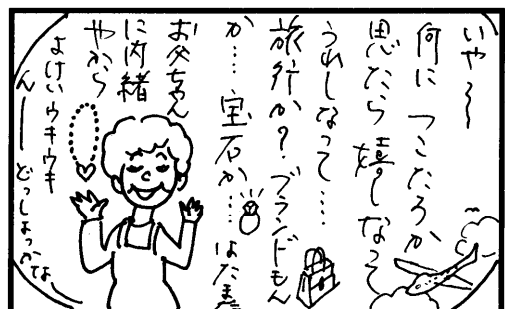 いや~~
何に つこたろか
思たら 嬉しなって
うれしなって‥‥
旅行か？ブランドもん
か‥‥ 宝石か‥‥
はたまた
お父ちゃん
に内緒
やから
よけいウキウキ
んー どっしょっかなー